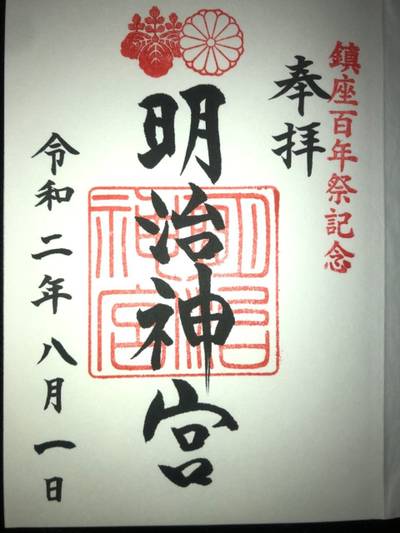 鎮座百年祭記念
奉拝
明治神宮
明治神宮
令和二年八月一日